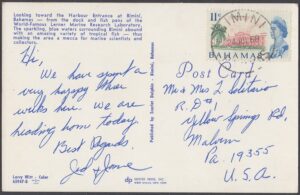 Looking toward the Harbour Entrance at Bimini,
Bahamas — from the dock and fish pens of the
World-famous Lerner Marine Research Laboratory.
The sparkling blue waters surrounding Bimini abound
with an amazing variety of tropical fish — that
making the area a mecca for marine scientists and
collectors.
Hi,
We have spent a
very happy three
weeks here. We are
heading home today.
Best Regards,
Jed & Jane
Larry Witt - Color
Post Card
BIMINI
11
BAHAMAS
Mr & Mrs L
R.D. 1
Yellow Springs Rd
Malvern
Pa. 19355
U.S.A.